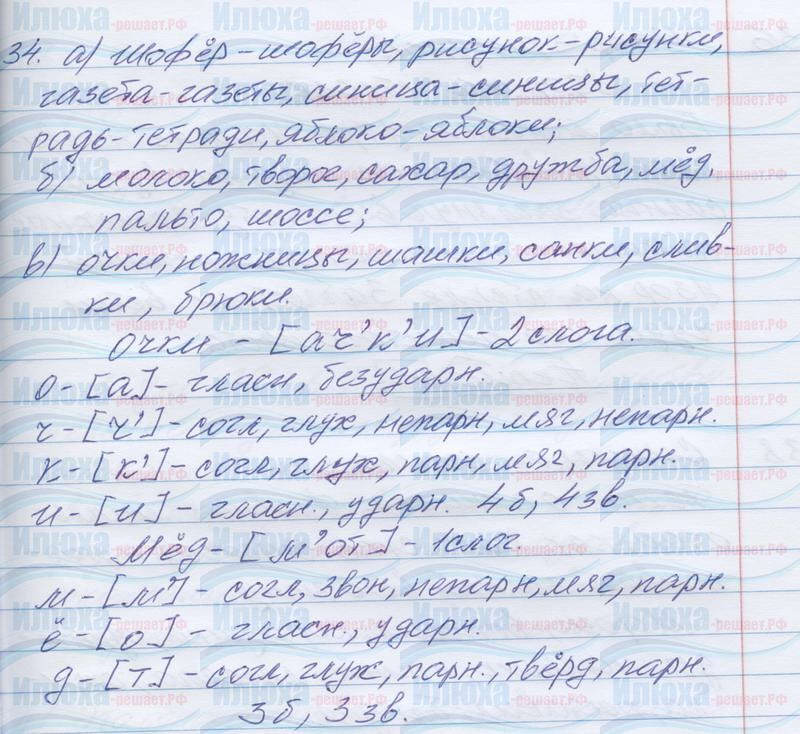 34. а) шофёр-шофёры, рисунок-рисунки,
газета-газеты, синица-синицы, тет-
радь-тетради, яблоко-яблоки;
б) молоко, творог, сахар, дружба, мёд,
пальто, шоссе;
в) очки, ножницы, шашки, санки, слив-
ки, брюки.
очки - [ач'к'и] - 2 слога.
о-[а]- гласн, безударн.
ч-[ч']-согл, глух, непарн, мяг, непарн.
к-[к']-согл, глух, парн, мяг, парн.
и-[и]-гласн., ударн. 4б, 4зв.
Мёд-[м'от]-1слог.
м-[м']-согл, звон, непарн, мяг, парн.
ё-[о]- гласн., ударн.
д-[т]-согл, глух, парн., твёрд, парн.
3б, 3зв.
Илюха-решает.РФ